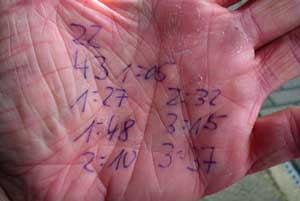 22
43 1:05
1:27 2:32
1:48 3:15
2:10 3:37